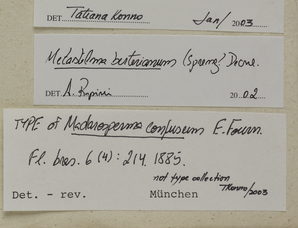 Tatiana Konno
DET. Jan/ 2003
Metastelma berterianum (Spreng) Decne.
DET. A. Rapini 20 02
TYPE of Madarosperma confusum E. Fourn.
Fl. bras. 6 (4): 214. 1885.
not type collection
TKonno/2003
Det. - rev. München